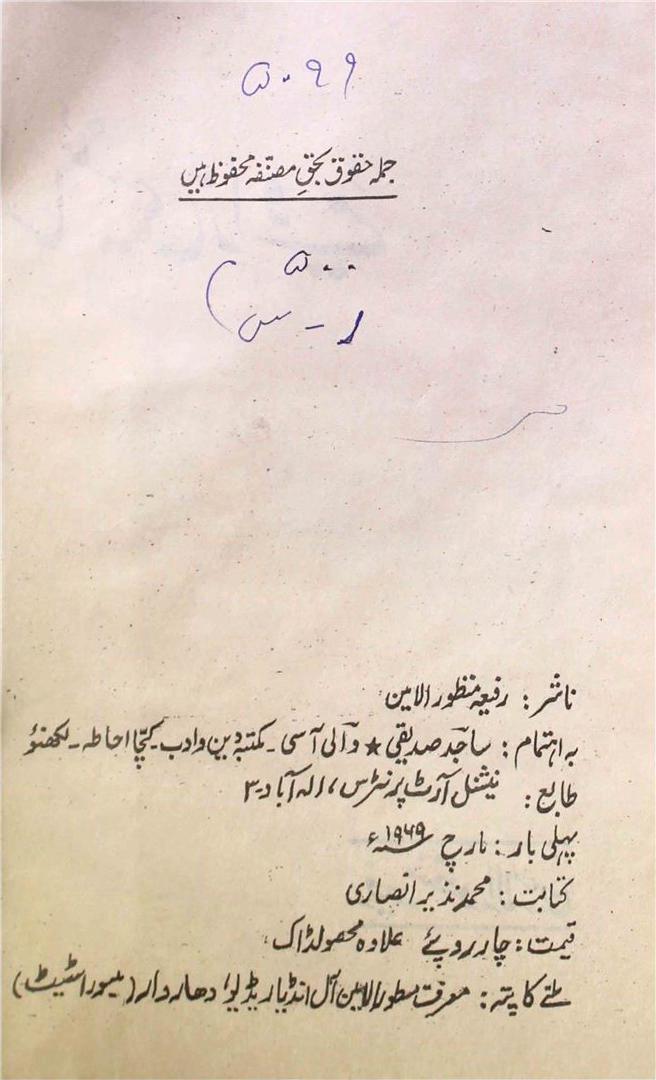 ۵۰۹۹
جملہ حقوق بحقِ مصنفہ محفوظ ہیں
۵۰۰
ناشر: رفیعہ منظور الامین
بہ اہتمام: ساجد صدیقی ★ والی آسی ۔ مکتبۂ دین و ادب ۔ کچا احاطہ ۔ لکھنؤ
طابع: نیشنل آرٹ پرنٹرس، الہ آباد۔۳
پہلی بار: مارچ ۱۹۶۹ء
کتابت: محمد نذیر انصاری
قیمت: چار روپئے علاوہ محصول ڈاک
ملنے کا پتہ: معرفت منظور الامین آل انڈیا ریڈیو، دھاروار (میسور اسٹیٹ)